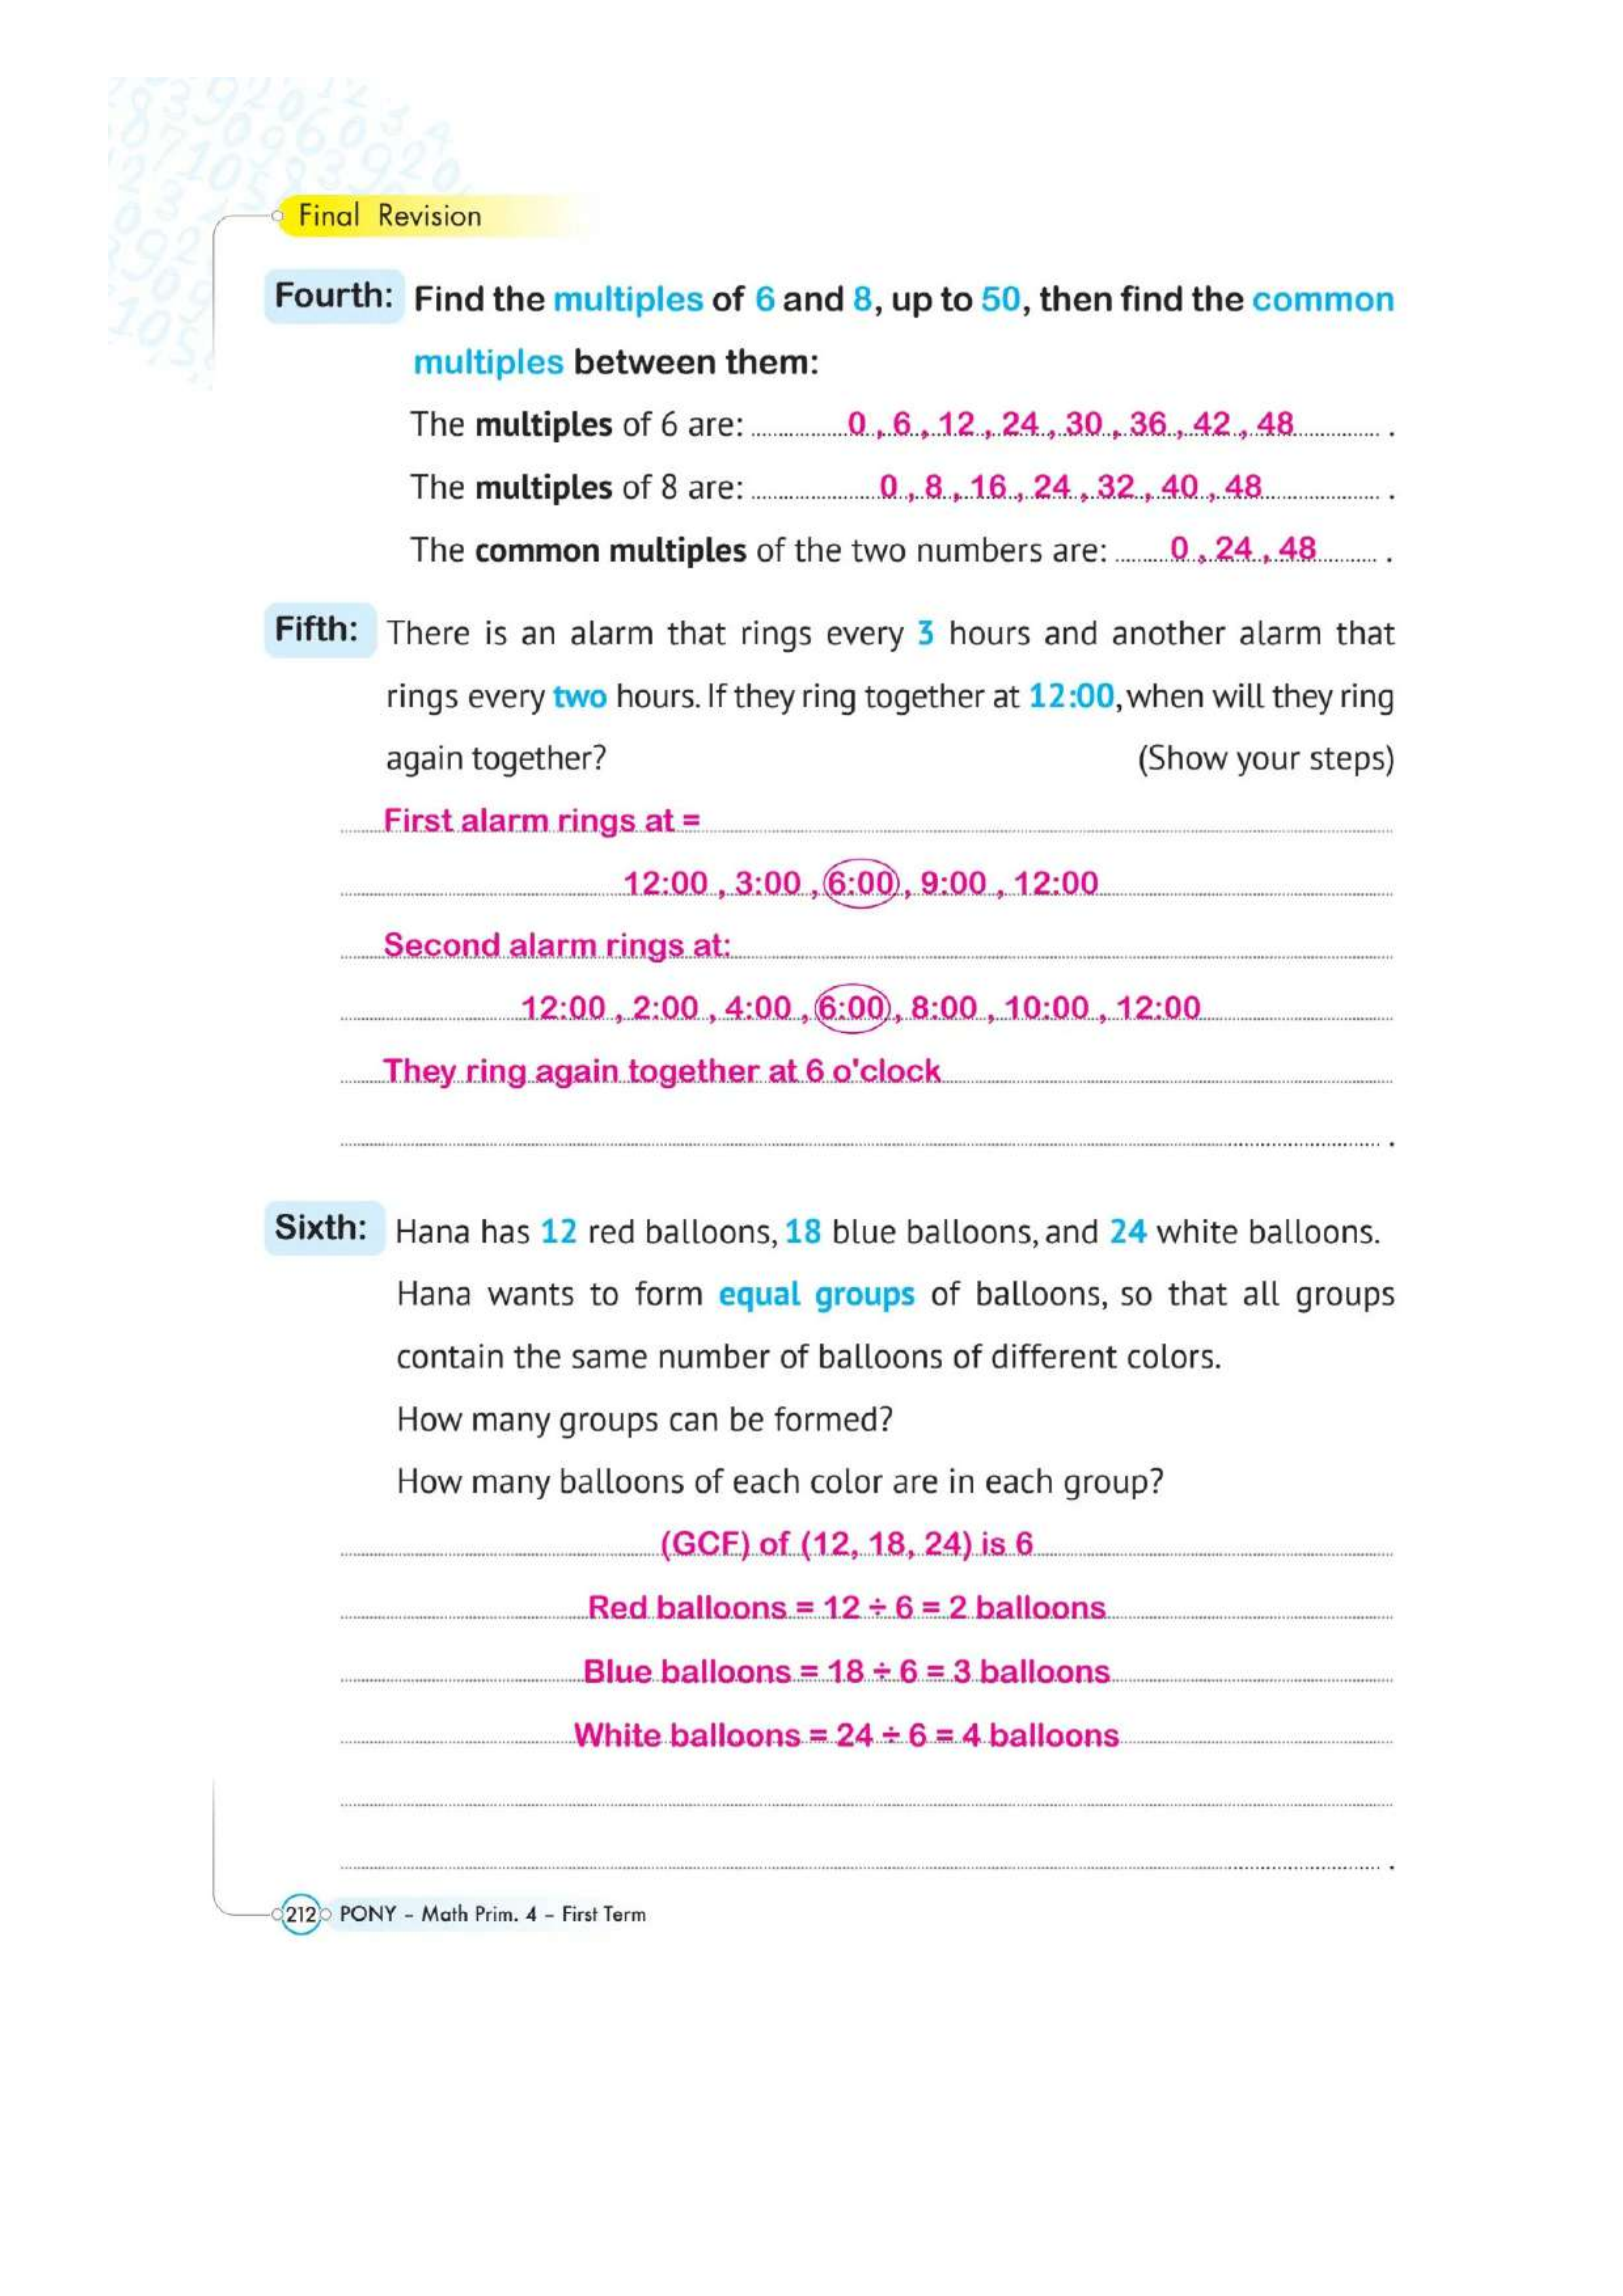 Final Revision
Fourth: Find the multiples of 6 and 8, up to 50, then find the common
multiples between them:
The multiples of 6 are: 0 , 6 , 12 , 24 , 30 , 36 , 42 , 48 .
The multiples of 8 are: 0 , 8 , 16 , 24 , 32 , 40 , 48 .
The common multiples of the two numbers are: 0 , 24 , 48 .
Fifth: There is an alarm that rings every 3 hours and another alarm that
rings every two hours. If they ring together at 12:00, when will they ring
again together? (Show your steps)
First alarm rings at =
12:00 , 3:00 , 6:00 , 9:00 , 12:00
Second alarm rings at:
12:00 , 2:00 , 4:00 , 6:00 , 8:00 , 10:00 , 12:00
They ring again together at 6 o'clock
Sixth: Hana has 12 red balloons, 18 blue balloons, and 24 white balloons.
Hana wants to form equal groups of balloons, so that all groups
contain the same number of balloons of different colors.
How many groups can be formed?
How many balloons of each color are in each group?
(GCF) of (12, 18, 24) is 6
Red balloons = 12 ÷ 6 = 2 balloons
Blue balloons = 18 ÷ 6 = 3 balloons
White balloons = 24 ÷ 6 = 4 balloons
212 PONY – Math Prim. 4 – First Term